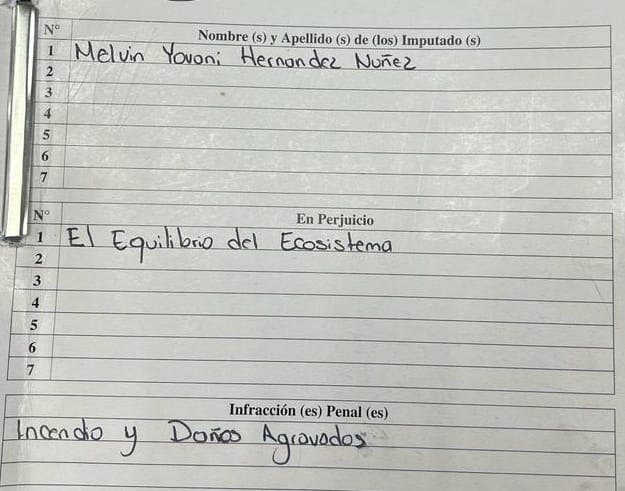 N° Nombre (s) y Apellido (s) de (los) Imputado (s)
1 Melvin Yovani Hernandez Nuñez
2
3
4
5
6
7
N° En Perjuicio
1 El Equilibrio del Ecosistema
2
3
4
5
6
7
Infracción (es) Penal (es)
Incendio y Daños Agravados